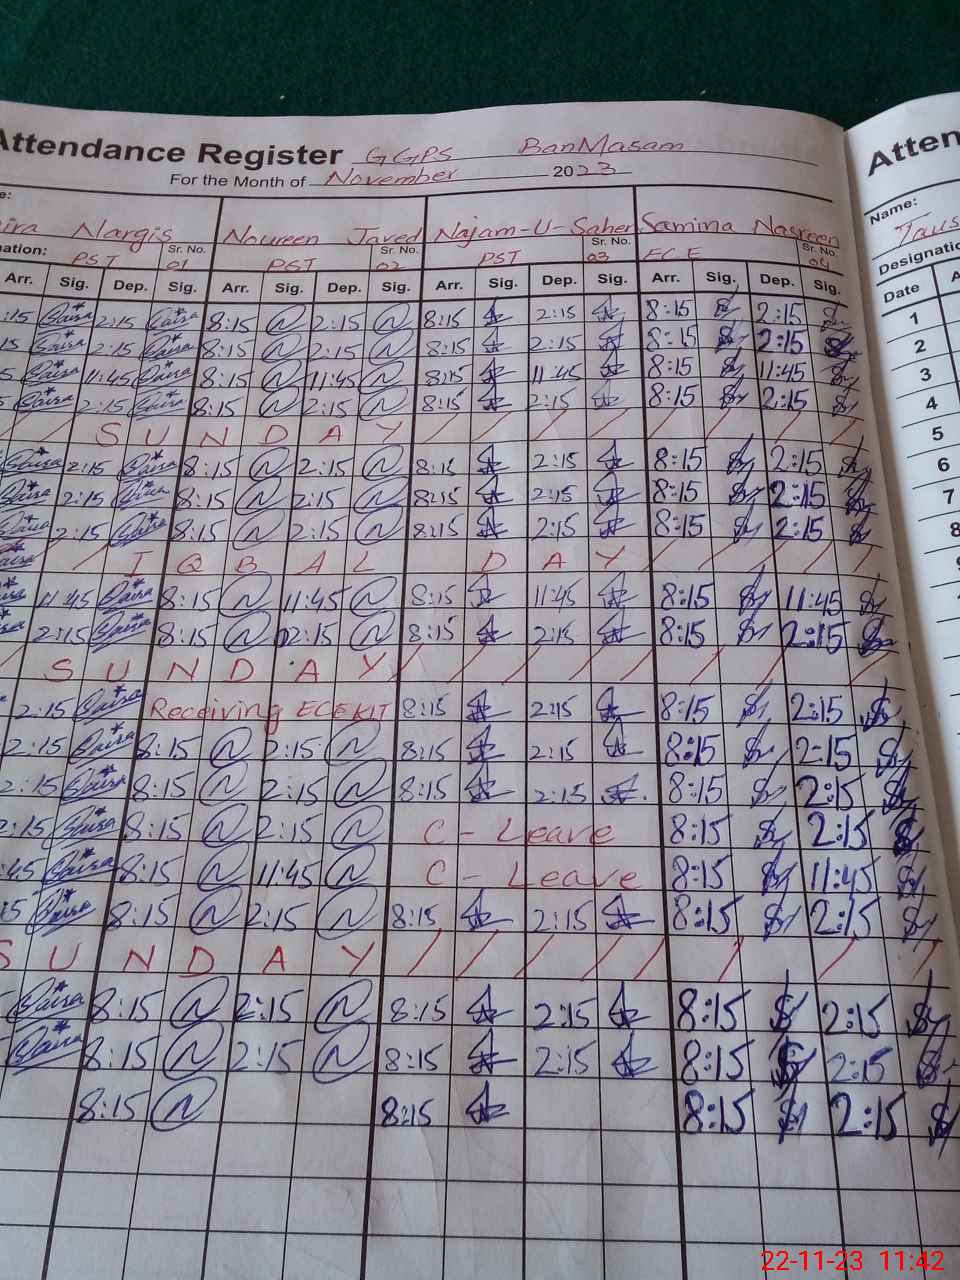 Attendance Register GGPS BanMasam
For the Month of November 2023
Nargis Noureen Javed Najam-U-Saher Samina Nasreen
PST Sr. No. 01 PST Sr. No. 02 PST Sr. No. 03 ECE Sr. No. 04
Arr. Sig. Dep. Sig. Arr. Sig. Dep. Sig. Arr. Sig. Dep. Sig. Arr. Sig. Dep. Sig.
:15 Saira 2:15 Saira 8:15 N 2:15 N 8:15 2:15 8:15 2:15
15 Saira 2:15 Saira 8:15 N 2:15 N 8:15 2:15 8:15 2:15
5 Saira 11:45 Saira 8:15 N 11:45 N 8:15 11:45 8:15 11:45
5 Saira 2:15 Saira 8:15 N 2:15 N 8:15 2:15 8:15 2:15
SUNDAY
Saira 2:15 Saira 8:15 N 2:15 N 8:15 2:15 8:15 2:15
Saira 2:15 Saira 8:15 N 2:15 N 8:15 2:15 8:15 2:15
Saira 2:15 Saira 8:15 N 2:15 N 8:15 2:15 8:15 2:15
IQBAL DAY
11:45 Saira 8:15 N 11:45 N 8:15 11:45 8:15 11:45
2:15 Saira 8:15 N 02:15 N 8:15 2:15 8:15 2:15
SUNDAY
2:15 Saira Receiving ECE KIT 8:15 2:15 8:15 2:15
2:15 Saira 8:15 N 2:15 N 8:15 2:15 8:15 2:15
2:15 Saira 8:15 N 2:15 N 8:15 2:15 8:15 2:15
2:15 Saira 8:15 N 2:15 N C - Leave 8:15 2:15
:45 Saira 8:15 N 11:45 N C - Leave 8:15 11:45
15 Saira 8:15 N 2:15 N 8:15 2:15 8:15 2:15
SUNDAY
Saira 8:15 N 2:15 N 8:15 2:15 8:15 2:15
Saira 8:15 N 2:15 N 8:15 2:15 8:15 2:15
8:15 N 8:15 8:15 2:15
Atten
Name:
Designatio
Date A
1
2
3
4
5
6
7
8
22-11-23 11:42